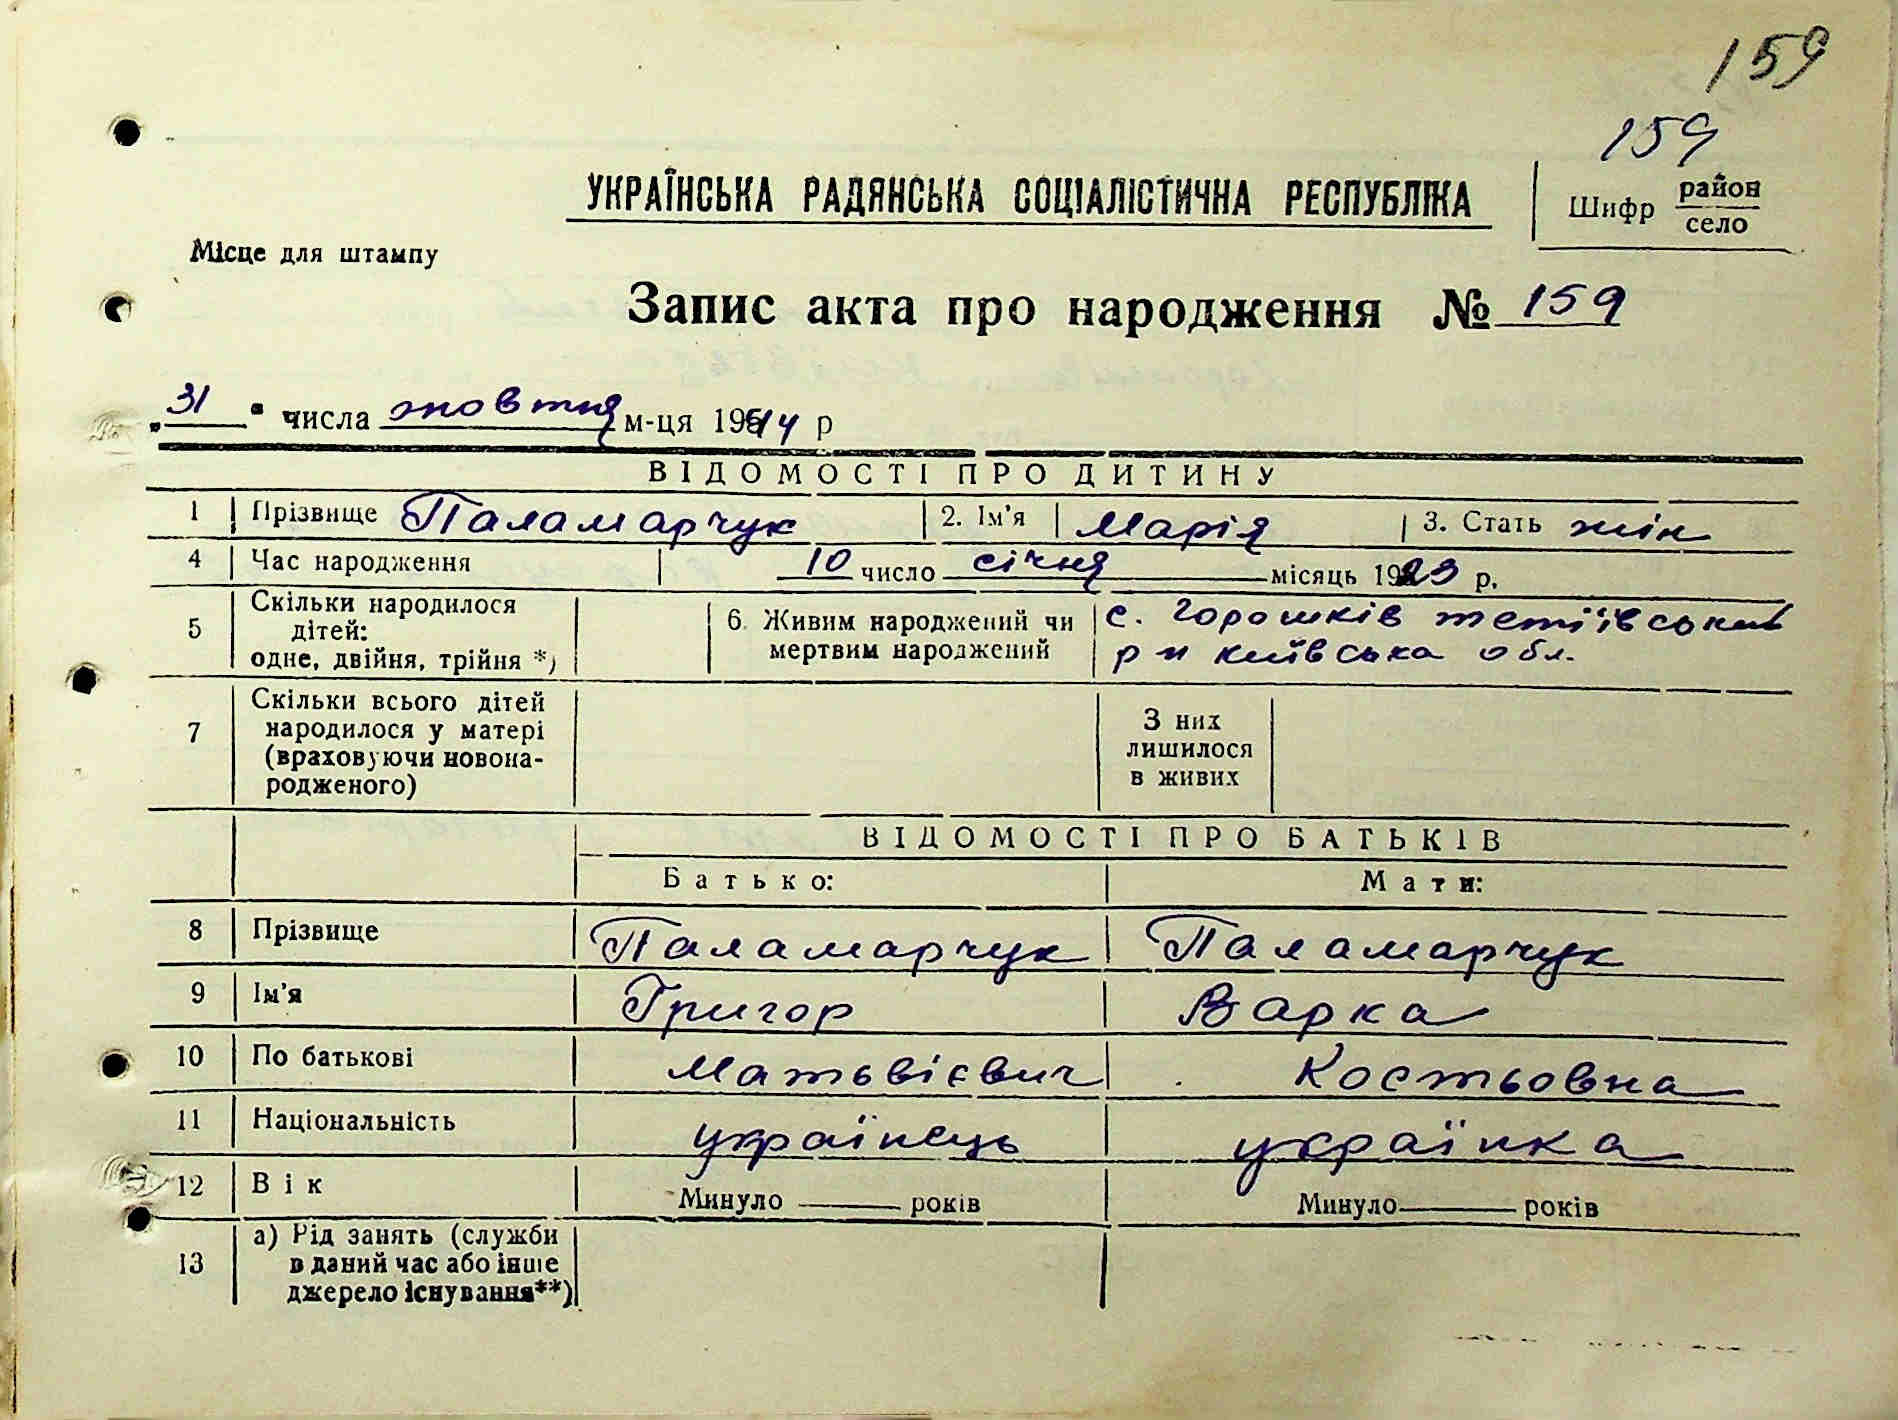 159
159
УКРАЇНСЬКА РАДЯНСЬКА СОЦІАЛІСТИЧНА РЕСПУБЛІКА
Шифр район
село
Місце для штампу
Запис акта про народження № 159
„31" числа жовтня м-ця 1944 р
ВІДОМОСТІ ПРО ДИТИНУ
1 Прізвище Паламарчук 2. Ім'я Марія 3. Стать жін
4 Час народження 10 число січня місяць 1923 р.
5 Скільки народилося дітей: одне, двійня, трійня *) 6. Живим народжений чи мертвим народжений с. Горошків Тетіївський
р н Київська обл.
7 Скільки всього дітей народилося у матері (враховуючи новона-родженого) З них лишилося в живих
ВІДОМОСТІ ПРО БАТЬКІВ
Батько: Мати:
8 Прізвище Паламарчук Паламарчук
9 Ім'я Григор Варка
10 По батькові Матьвієвич Костьовна
11 Національність українець українка
12 Вік Минуло років Минуло років
13 а) Рід занять (служби
в даний час або інше
джерело існування**)